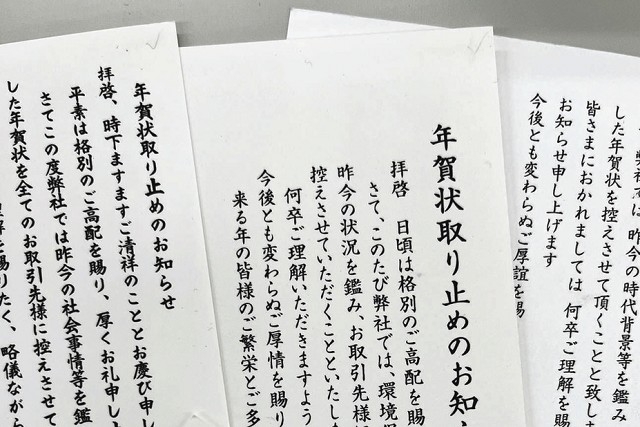 年賀状取り止めのお知らせ
拝啓、時下ますますご清祥のこととお慶び申し
平素は格別のご高配を賜り、厚くお礼申し
さてこの度弊社では昨今の社会事情等を鑑
した年賀状を全てのお取引先様に控えさせて
を賜りたく、略儀ながら
年賀状取り止めのお知
拝啓 日頃は格別のご高配を賜
さて、このたび弊社では、環境
昨今の状況を鑑み、お取引先様
控えさせていただくことといたし
何卒ご理解いただきますよう
今後とも変わらぬご厚情を賜り
来る年の皆様のご繁栄とご多
昨今の時代背景等を鑑み
した年賀状を控えさせて頂くことと致し
皆さまにおかれましては 何卒ご理解を賜
お知らせ申し上げます
今後とも変わらぬご厚誼を賜